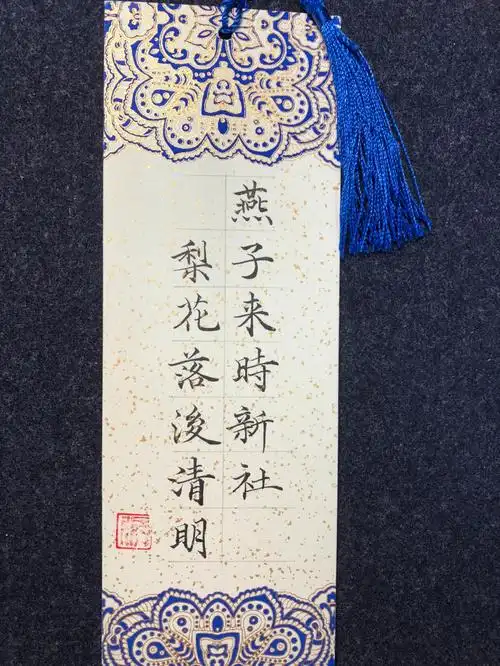 燕子来時新社
梨花落後清明